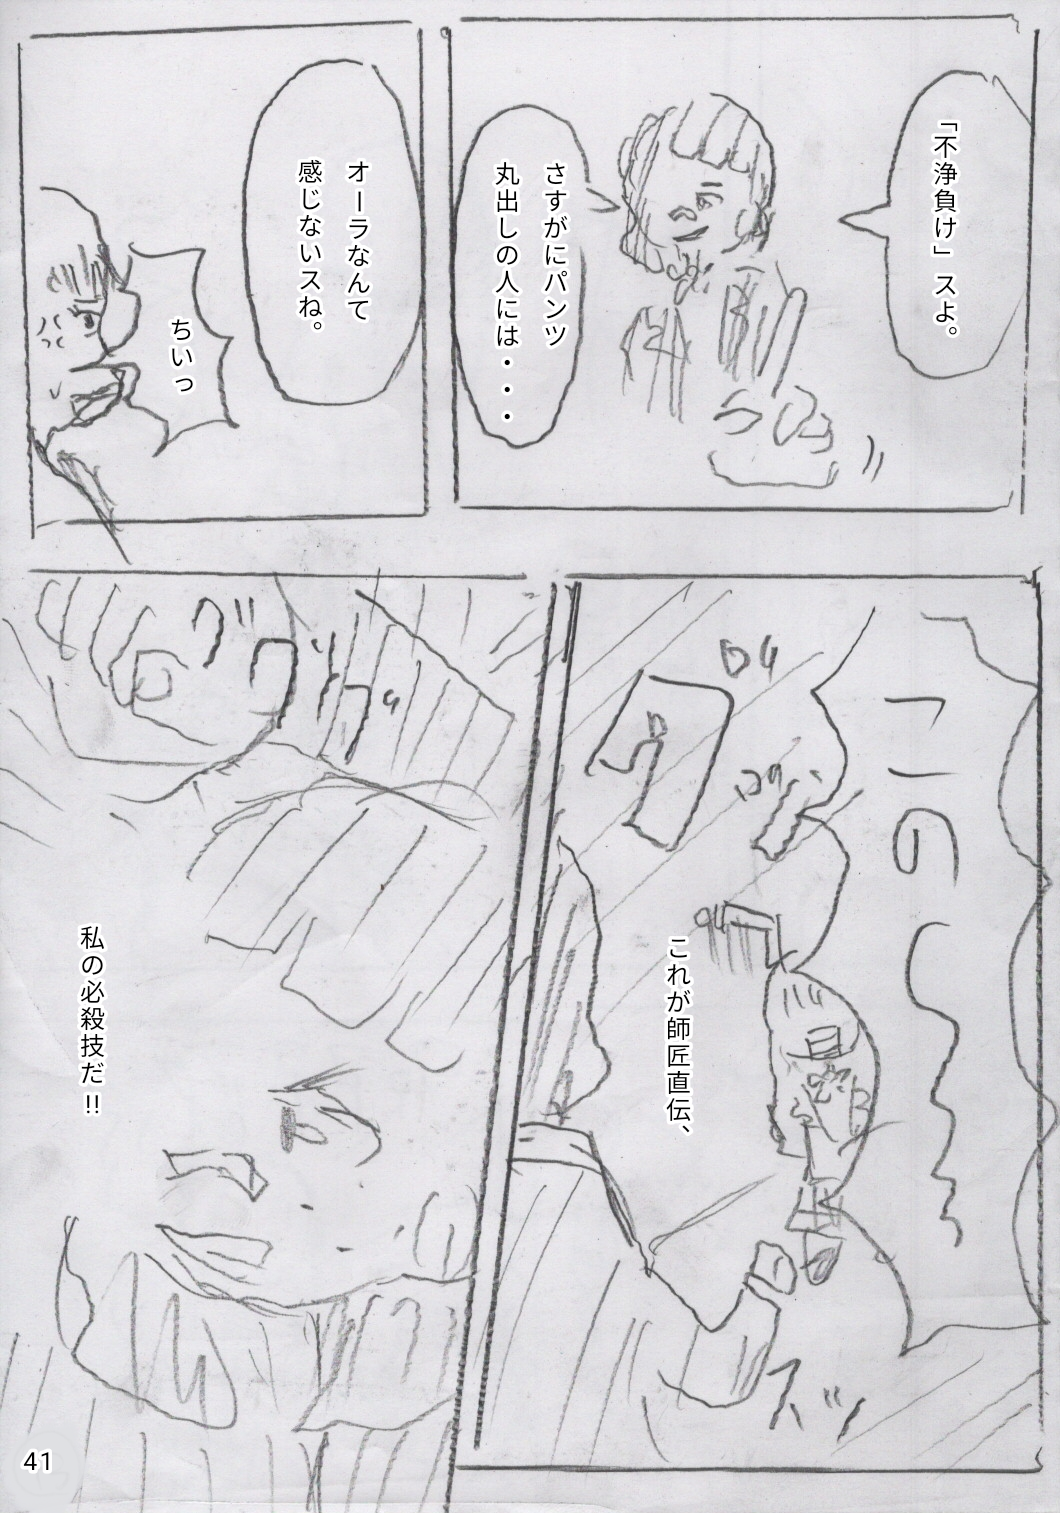 「不浄負け」スよ。
さすがにパンツ
丸出しの人には・・・
オーラなんて
感じないスね。
ちいっ
このし〜〜
これが師匠直伝、
ズッ
私の必殺技だ!!
41